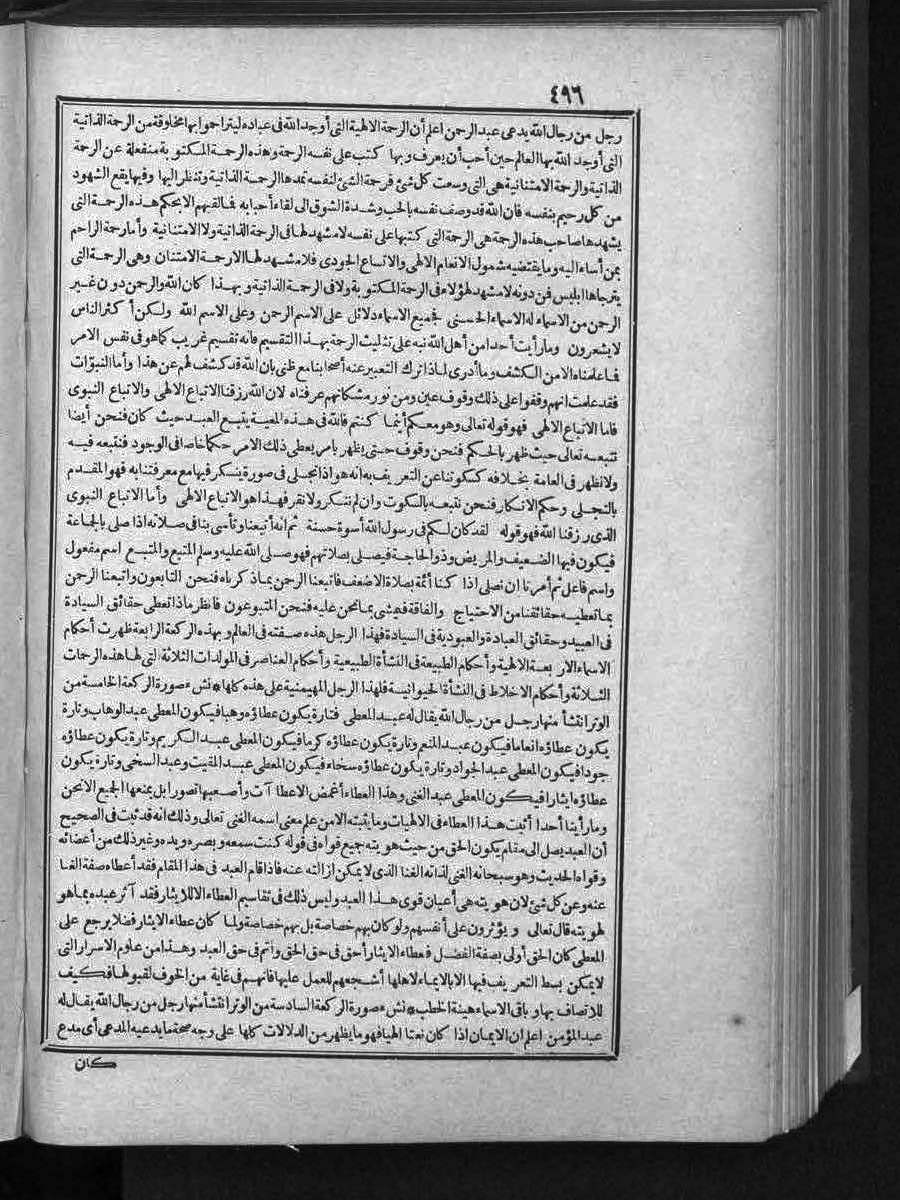 ٤٩٦
رجل من رجال الله يدعى عبد الرحمن اعلم أن الرحمة الالهية التى أوجد الله فى عباده ليتراحموا بها مخلوقة من الرحمة الذاتية
التى أوجد الله بها العالم حين أحب أن يعرف وبها كتب على نفسه الرحمة وهذه الرحمة المكتوبة منفعلة عن الرحة
الذاتية والرحمة الامتنانية هى التى وسعت كل شئ فرحمة الشئ لنفسه تمدها الرحمة الذاتية وتنظر اليها وفيها يقع الشهود
من كل رحيم بنفسه فان الله قد وصف نفسه بالحب وشدة الشوق الى لقاء أحبابه فما لقيهم الا بحكم هذه الرحمة التى
يشهدها صاحب هذه الرحمة هى الرحمة التى كتبها على نفسه لا مشهد لها فى الرحمة الذاتية ولا الامتنانية وأما رحمة الراحم
بمن أساء اليه وما يقتضيه شمول الانعام الالهى والاتساع الجودى فلا مشهد لها الا رحمة الامتنان وهى الرحمة التى
يترجاها ابليس فمن دونه لا مشهد لهؤلاء فى الرحمة المكتوبة ولا فى الرحمة الذاتية وبهذا كان الله والرحمن دون غير
الرحمن من الاسماء له الاسماء الحسنى فجميع الاسماء دلائل على الاسم الرحمن وعلى الاسم الله ولكن أكثر الناس
لا يشعرون وما رأيت أحدا من أهل الله نبه على تثليث الرحمة بهذا التقسيم فانه تقسيم غريب كما هو فى نفس الامر
فما علمناه الا من الكشف وما أدرى لماذا ترك التعبير عنه أصحابنا مع ظنى بان الله قد كشف لهم عن هذا وأما النبوّات
فقد علمت انهم وقفوا على ذلك وقوف عين ومن نور مشكاتهم عرفناه لان الله رزقنا الاتباع الالهى والاتباع النبوى
فاما الاتباع الالهى فهو قوله تعالى وهو معكم أينما كنتم فالله فى هذه المعية يتبع العبد حيث كان فنحن أيضا
نتبعه تعالى حيث ظهر بالحكم فنحن وقوف حتى يظهر بأمر يعطى ذلك الامر حكما خاصا فى الوجود فنتبعه فيه
ولا نظهر فى العامة بخلافه كسكوتنا عن التعريف به انه هو اذا تجلى فى صورة ينكر فيها مع معرفتنا به فهو المقدم
بالتجلى وحكم الانكار فنحن نتبعه بالسكوت وان لم ننكر ولا نقر فهذا هو الاتباع الالهى وأما الاتباع النبوى
الذى رزقنا الله فهو قوله لقد كان لكم فى رسول الله أسوة حسنة ثم انه أتبعنا وتأسى بنا فى صلاته اذا صلى بالجماعة
فيكون فيها الضعيف والمريض وذو الحاجة فيصلى بصلاتهم فهو صلى الله عليه وسلم المتبع والمتبع اسم مفعول
واسم فاعل ثم أمرنا ان نصلى اذا كنا أئمة بصلاة الاضعف فاتبعنا الرحمن بماذ كرناه فنحن التابعون واتبعنا الرحمن
بما تعطيه حقائقنا من الاحتياج والفاقة فيمشى بما نحن عليه فنحن المتبوعون فانظر ماذا تعطى حقائق السيادة
فى العبيد وحقائق العبادة والعبودية فى السيادة فهذا الرجل هذه صفته فى العالم وبهذه الركعة الرابعة ظهرت أحكام
الاسماء الاربعة الالهية وأحكام الطبيعة فى النشأة الطبيعية وأحكام العناصر فى المولدات الثلاثة التى لها هذه الرحمات
الثلاثة وأحكام الاخلاط فى النشأة الحيوانية فلهذا الرجل المهيمنية على هذه كلها * نش ء صورة الركعة الخامسة من
الوتر انتشأ منها رجل من رجال الله يقال له عبد المعطى فتارة يكون عطاؤه وهبا فيكون المعطى عبد الوهاب وتارة
يكون عطاؤه انعاما فيكون عبد المنعم وتارة يكون عطاؤه كرما فيكون المعطى عبد الكريم وتارة يكون عطاؤه
جودا فيكون المعطى عبد الجواد وتارة يكون عطاؤه سخاء فيكون المعطى عبد المقيت وعبد السخى وتارة يكون
عطاؤه ايثارا فيكون المعطى عبد الغنى وهذا العطاء أغمض الاعطاآت وأصعبها تصورا بل يمنعها الجميع الا نحن
وما رأينا أحدا أثبت هذا العطاء فى الالهيات وما يثبته الا من علم معنى اسمه الغنى تعالى وذلك انه قد ثبت فى الصحيح
أن العبد يصل الى مقام يكون الحق من حيث هويته جميع قواه فى قوله كنت سمعه وبصره ويده وغير ذلك من أعضائه
وقواه الحديث وهو سبحانه الغنى لذاته الغنا الذى لا يمكن ازالته عنه فاذا أقام العبد فى هذا المقام فقد أعطاه صفة الغنا
عنه وعن كل شئ لان هويته هى أعيان قوى هذا العبد وليس ذلك فى تقاسيم العطاء الا للايثار فقد آثر عبده بما هو
لهويته قال تعالى ويؤثرون على أنفسهم ولو كان بهم خصاصة بل بهم خصاصة ولما كان عطاء الايثار فضلا يرجع على
المعطى كان الحق أولى بصفة الفضل فعطاء الايثار أحق فى حق الحق وأتم فى حق العبد وهذا من علوم الاسرار التى
لا يمكن بسط التعريف فيها الا بالايماء لاهلها أشجعهم للعمل عليها فانهم فى غاية من الخوف لقبولها فكيف
للاتصاف بها وباقى الاسماء هينة الخطب * نش ء صورة الركعة السادسة من الوتر انتشأ منها رجل من رجال الله يقال له
عبد المؤمن اعلم ان الايمان اذا كان نعتا الهيا فهو ما يظهر من الدلالات كلها على وجه صحة ما يدعيه المدعى أى مدع
كان